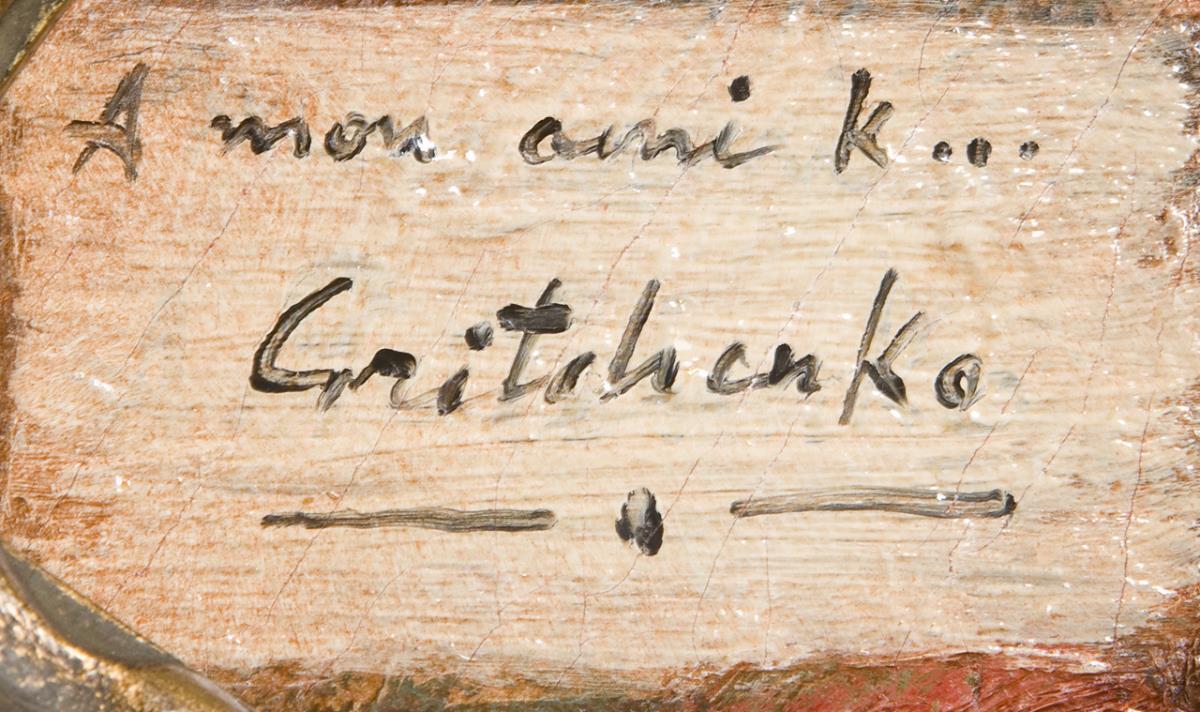 A mon ami K...
Gritchenko